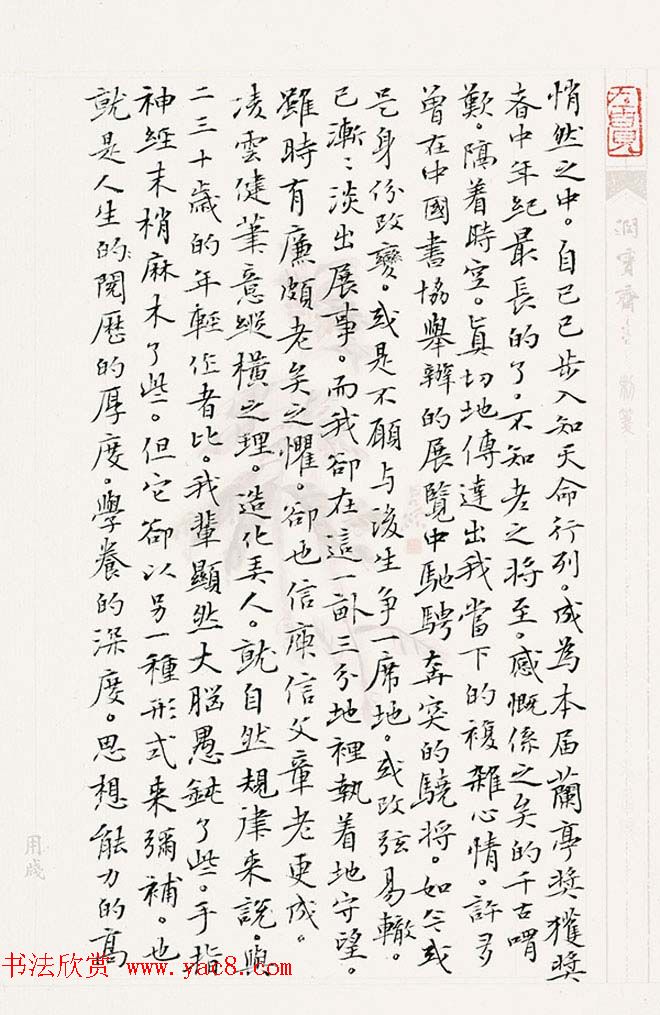 悄然之中。自己已步入知天命行列。成為本届蘭亭奬獲奬
者中年紀最長的了。不知老之将至。感慨係之矣的千古喟
歎。隔着時空。真切地傳達出我當下的複雜心情。許多
曾在中國書協舉辦的展覽中馳騁奔突的驍将。如今或
是身份改變。或是不願与後生争一席地。或改弦易轍。
已漸漸淡出展事。而我卻在這一畝三分地裡執着地守望。
雖時有廉頗老矣之懼。卻也信庾信文章老更成。
凌雲健筆意縱横之理。造化弄人。就自然規律来説。與
二三十歲的年輕作者比。我輩顯然大脳愚鈍了些。手指
神經末梢麻木了些。但它卻以另一種形式来彌補。也
就是人生的閲歷的厚度。學養的深度。思想能力的高
用牋
书法欣赏 www.yac8.com